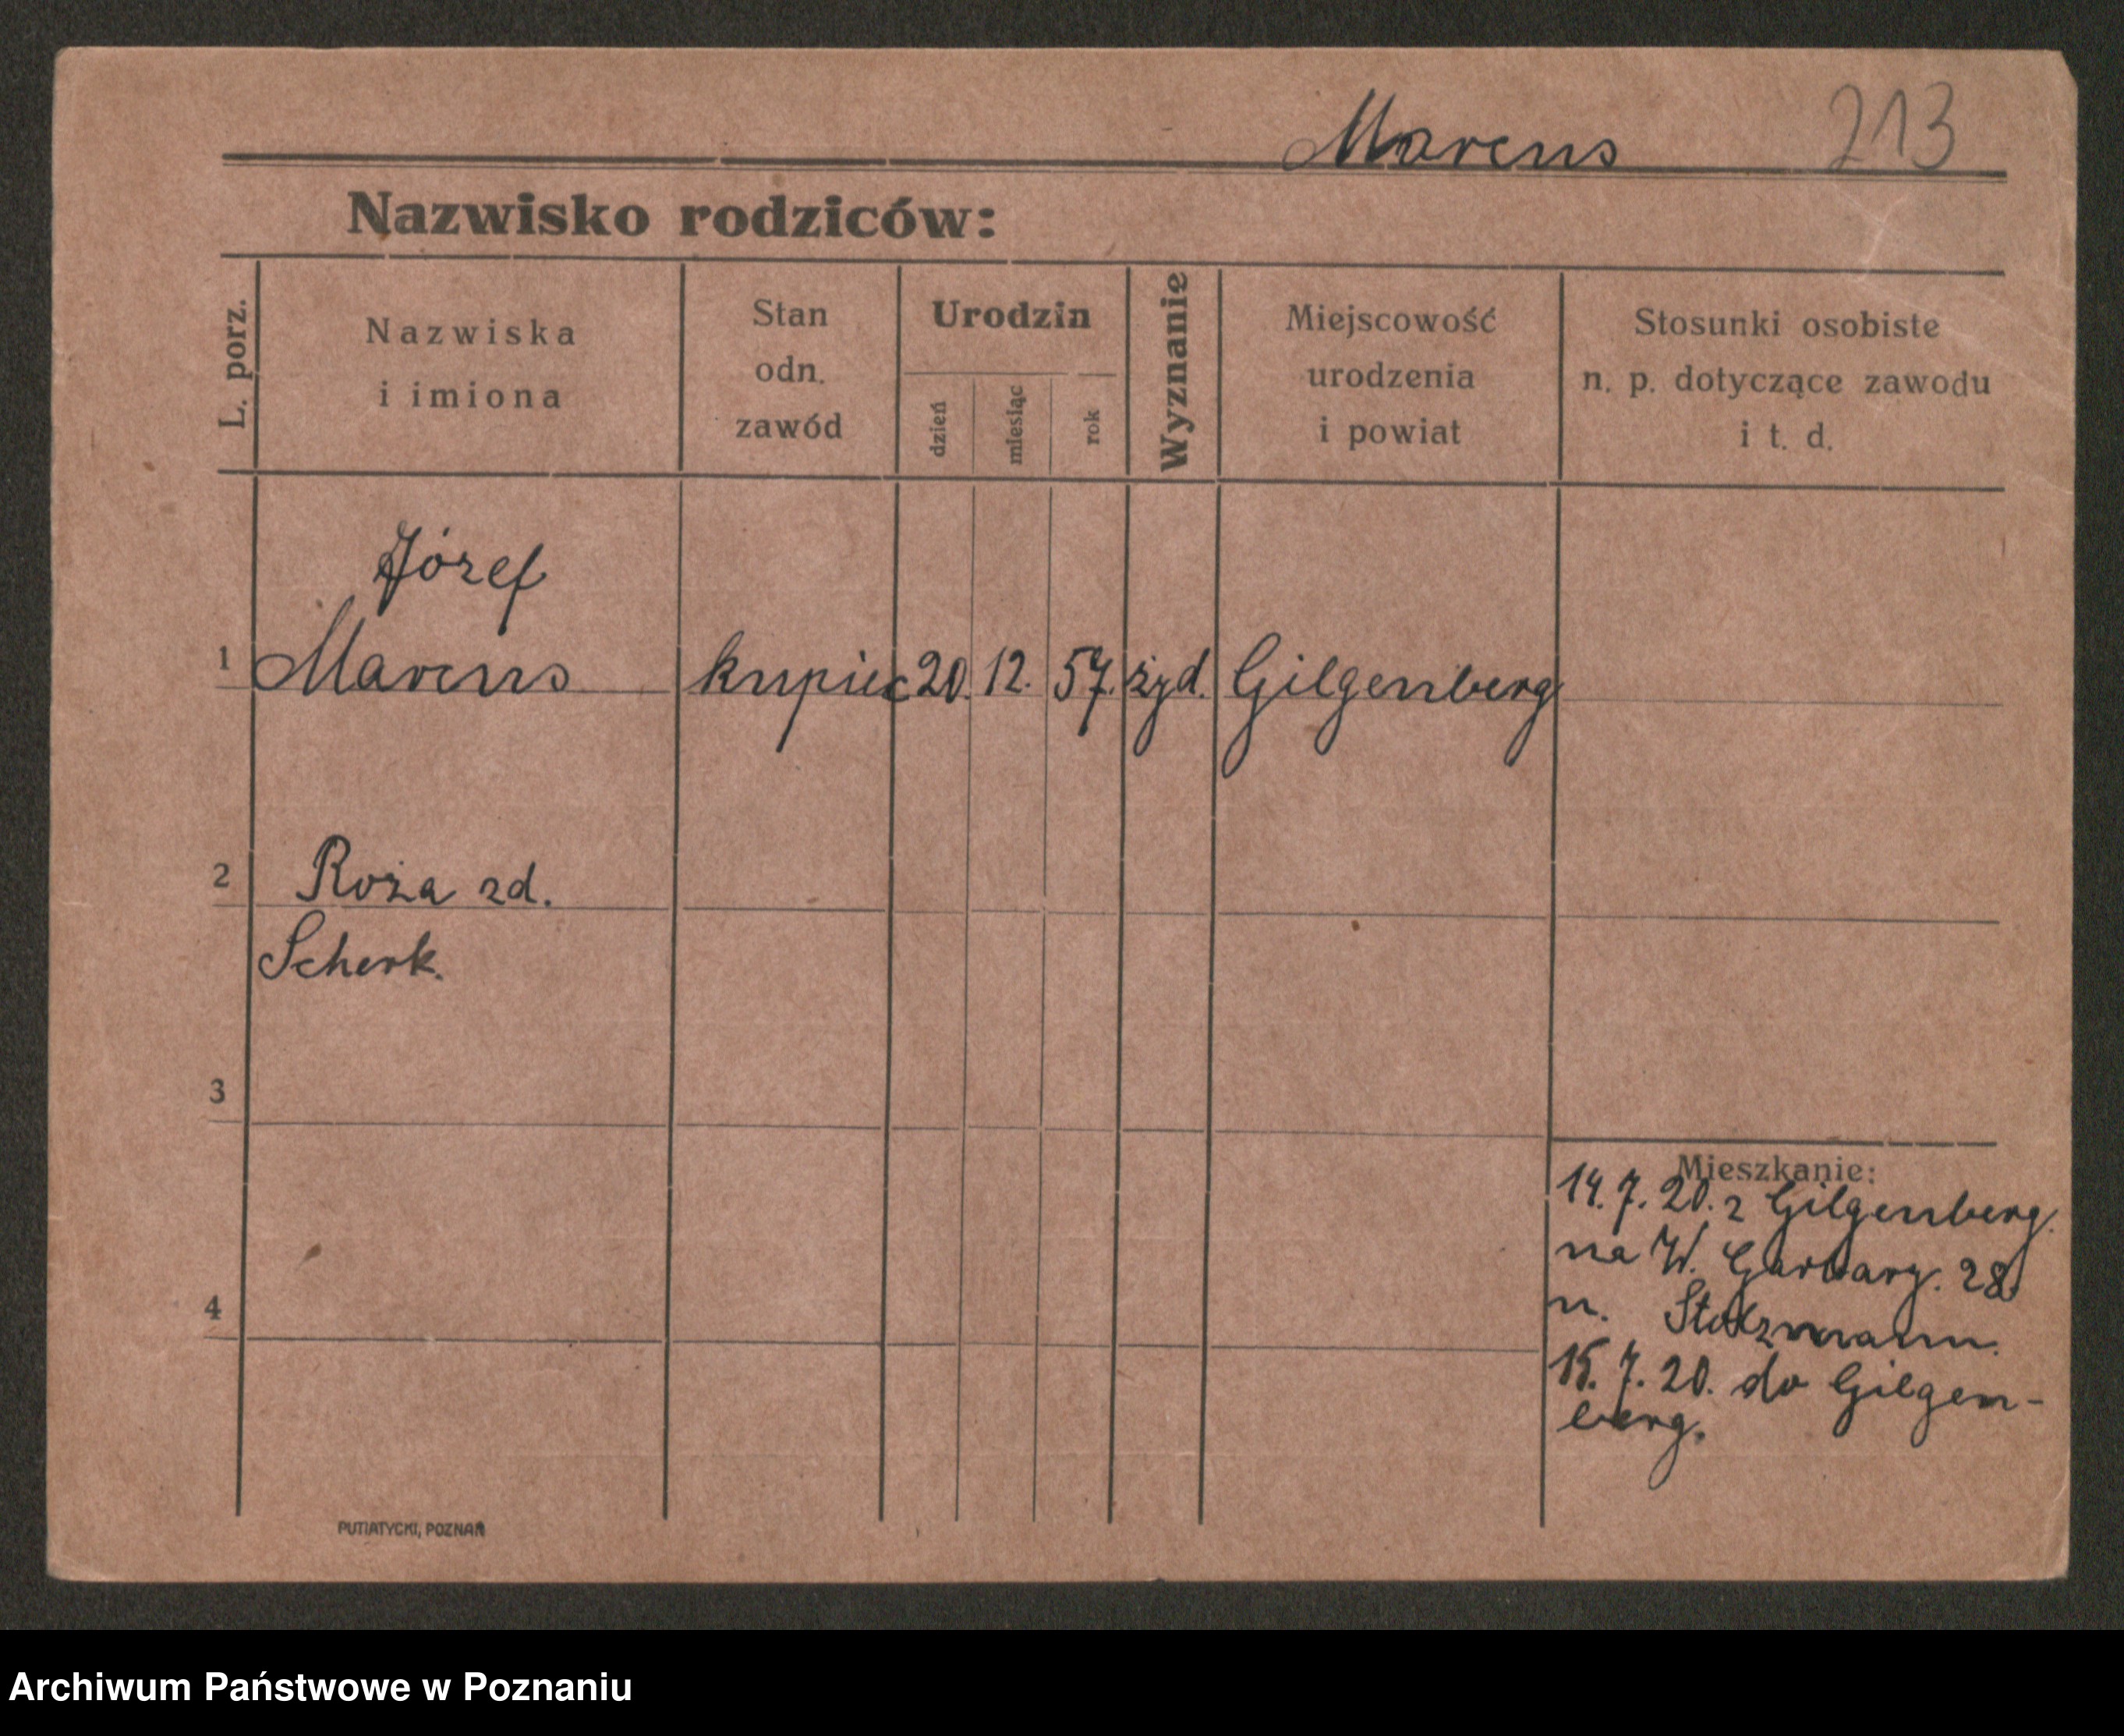 Marcus 213
Nazwisko rodziców:
L. porz.
Nazwiska
i imiona
Stan
odn.
zawód
Urodzin
dzień
miesiąc
rok
Wyznanie
Miejscowość
urodzenia
i powiat
Stosunki osobiste
n. p. dotyczące zawodu
i t. d.
Józef
1 Marcus kupiec 20. 12. 57. żyd. Gilgenberg
2 Roża zd.
Scherk.
3
4
Mieszkanie:
14. 7. 20. z Gilgenberg.
na W. Garbary. 28
n. Stolzmann.
15. 7. 20. do Gilgen-
berg.
PUTIATYCKI, POZNAŃ
Archiwum Państwowe w Poznaniu